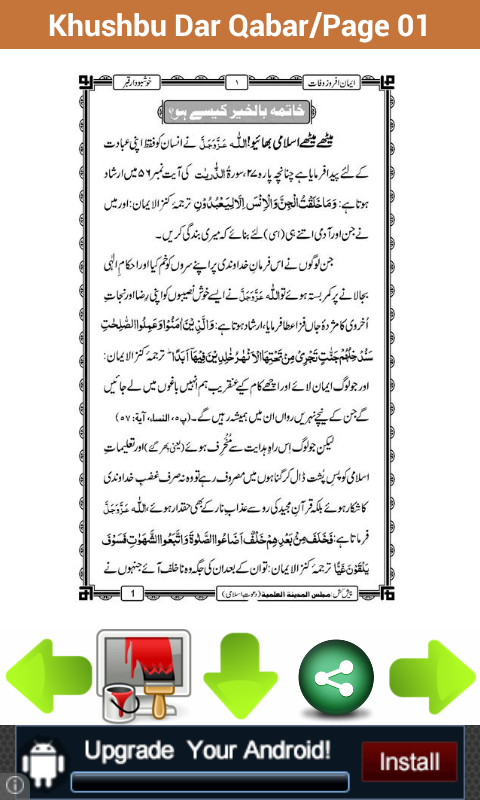 Khushbu Dar Qabar/Page 01
ایمان افروز وفات
۱
خوشبودار قبر
خاتمہ بالخیر کیسے ہو؟
میٹھے میٹھے اسلامی بھائیو! اللہ عَزَّوَجَلَّ نے انسان کو فقط اپنی عبادت
کے لئے پیدا فرمایا ہے چنانچہ پارہ ۲۷، سورۃُ الذّٰریٰت کی آیت نمبر ۵۶ میں ارشاد
ہوتا ہے: وَمَا خَلَقْتُ الْجِنَّ وَالْاِنْسَ اِلَّا لِيَعْبُدُوْنِ ترجمۂ کنزالایمان: اور میں
نے جن اور آدمی اتنے ہی (اسی) لئے بنائے کہ میری بندگی کریں۔
جن لوگوں نے اس فرمانِ خداوندی پر اپنے سروں کو خم کیا اور احکامِ الٰہی
بجا لانے پر کمر بستہ ہوئے تو اللہ عَزَّوَجَلَّ نے ایسے خوش نصیبوں کو اپنی رضا اور نجاتِ
اُخروی کا مژدۂ جاں فزا عطا فرمایا، ارشاد ہوتا ہے: وَالَّذِيْنَ اٰمَنُوْا وَعَمِلُوا الصّٰلِحٰتِ
سَنُدْخِلُهُمْ جَنّٰتٍ تَجْرِيْ مِنْ تَحْتِهَا الْاَنْهٰرُ خٰلِدِيْنَ فِيْهَآ اَبَدًا ؕ ترجمۂ کنزالایمان:
اور جو لوگ ایمان لائے اور اچھے کام کیے عنقریب ہم انہیں باغوں میں لے جائیں
گے جن کے نیچے نہریں رواں ان میں ہمیشہ رہیں گے۔ (پ۵، النساء، آیۃ: ۵۷)
لیکن جو لوگ اس راہِ ہدایت سے مُنْحَرِف ہوئے (یعنی پھر گئے) اور تعلیماتِ
اسلامی کو پسِ پُشت ڈال کر گناہوں میں مصروف رہے تو وہ نہ صرف غضبِ خداوندی
کا شکار ہوئے بلکہ قرآنِ مجید کی رو سے عذابِ نار کے بھی حقدار ہوئے، اللہ عَزَّوَجَلَّ
فرماتا ہے: فَخَلَفَ مِنْۢ بَعْدِهِمْ خَلْفٌ اَضَاعُوا الصَّلٰوةَ وَاتَّبَعُوا الشَّهَوٰتِ فَسَوْفَ
يَلْقَوْنَ غَيًّا ترجمۂ کنزالایمان: تو ان کے بعد ان کی جگہ وہ ناخلف آئے جنہوں نے
پیش کش: مجلس المدینۃ العلمیۃ (دعوتِ اسلامی)
1
Upgrade Your Android!
Install